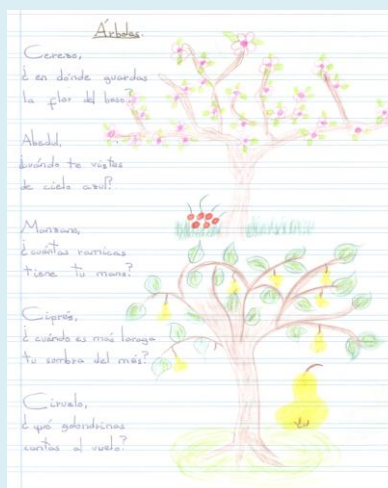 Árboles.
Cerezo,
¿en dónde guardas
la flor del beso?
Abedul,
¿cuándo te vistes
de cielo azul?
Manzano,
¿cuántas ramicas
tiene tu mano?
Ciprés,
¿cuándo es más laraga
tu sombra del mes?
Ciruelo,
¿qué golondrinas
cantas al vuelo?